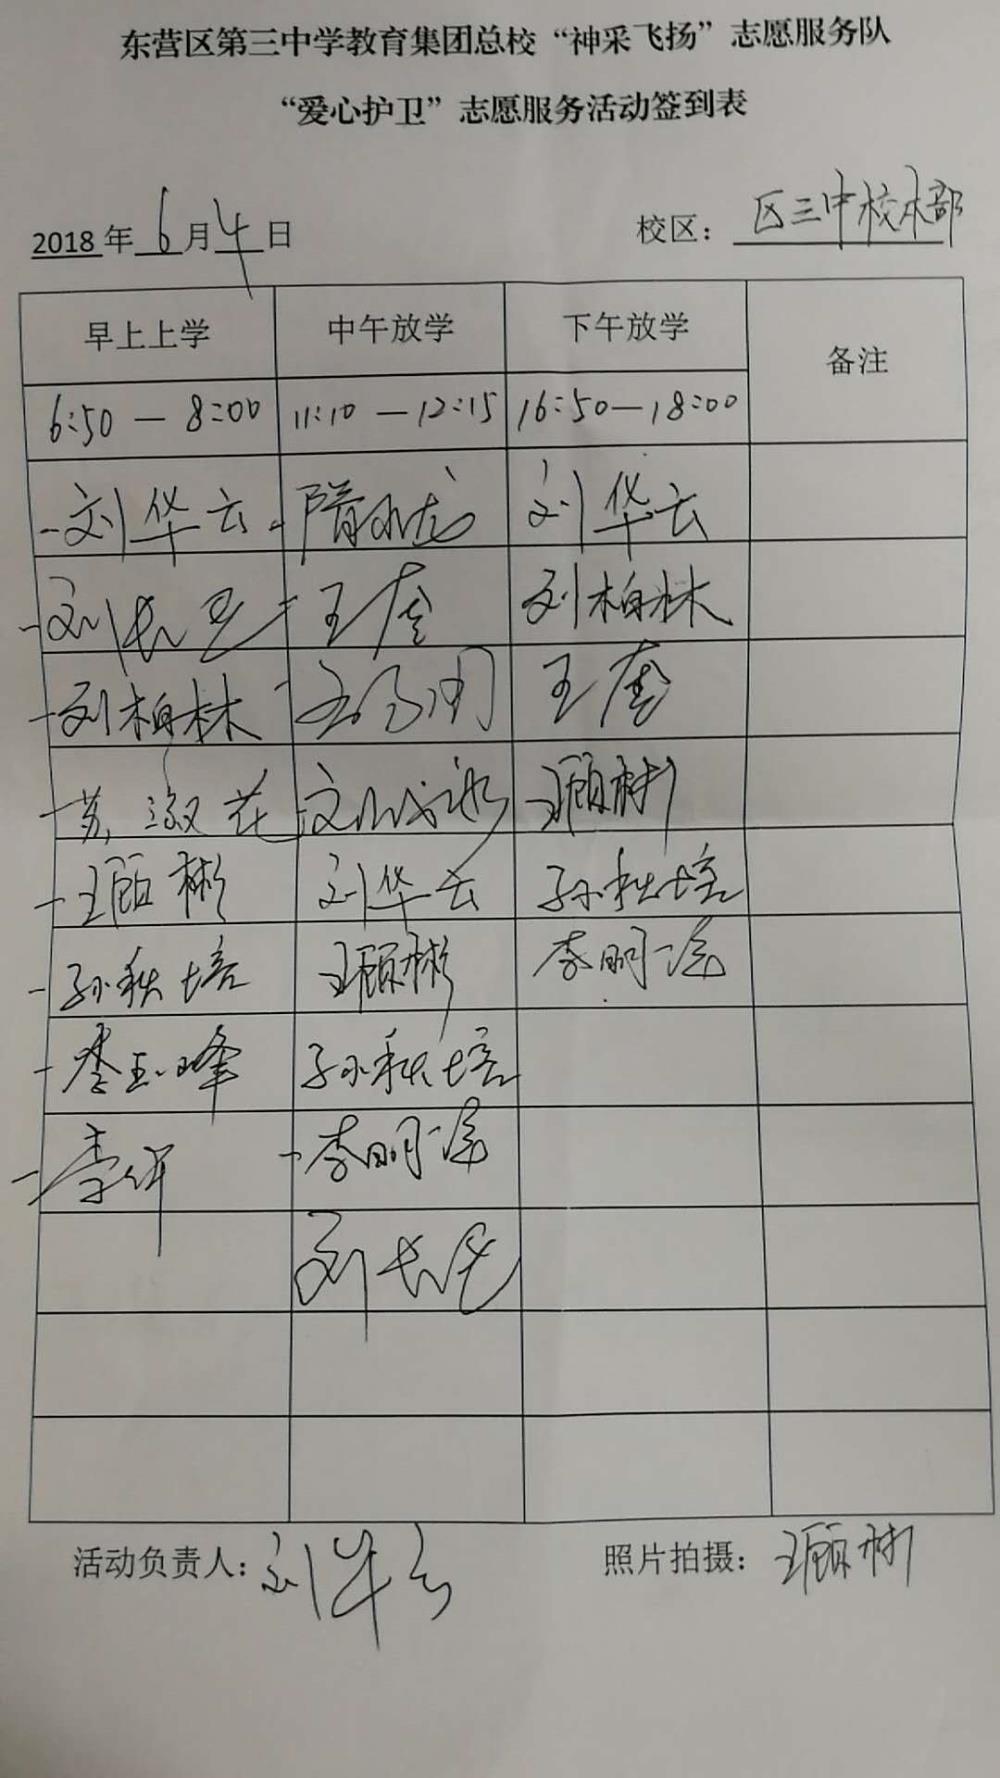 东营区第三中学教育集团总校“神采飞扬”志愿服务队
“爱心护卫”志愿服务活动签到表
2018年6月4日 校区：区三中校本部
早上上学 中午放学 下午放学 备注
6:50—8:00 11:10—12:15 16:50—18:00
刘华云 隋 刘华云
刘长 王奎 刘柏林
刘柏林 王奎
苏淑花 王顾彬
王顾彬 刘华云 孙秋培
孙秋培 王顾彬 李明
李玉峰 孙秋培
李 李明
刘长
活动负责人：刘华云 照片拍摄：王顾彬